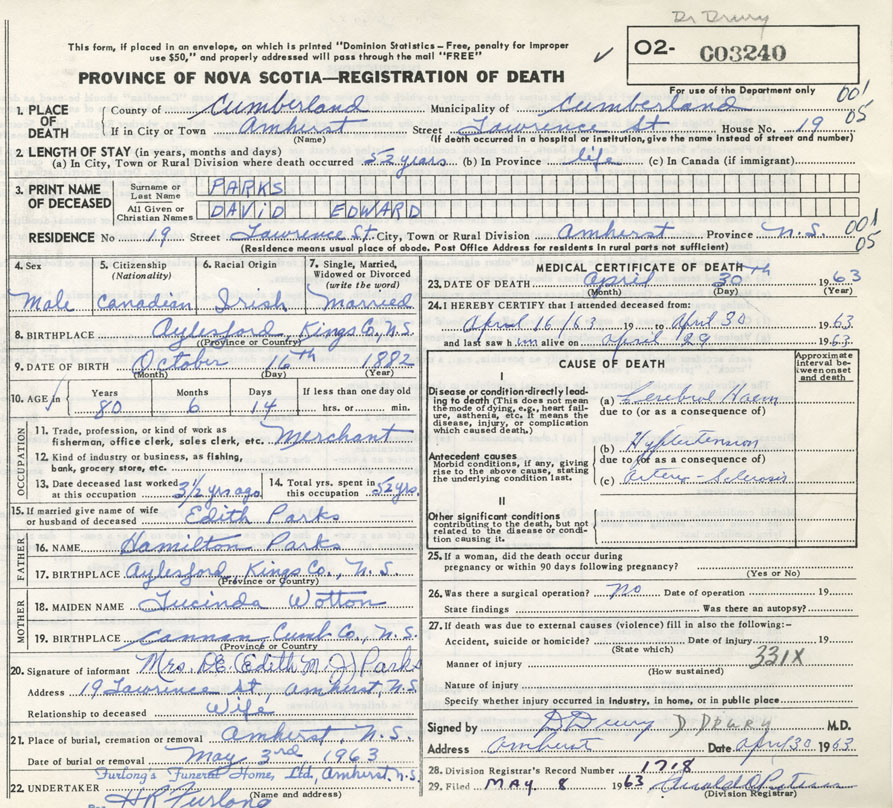 Dr Drury
This form, if placed in an envelope, on which is printed "Dominion Statistics – Free, penalty for improper
use $50," and properly addressed will pass through the mail "FREE"
✓
O2- C03240
PROVINCE OF NOVA SCOTIA—REGISTRATION OF DEATH
For use of the Department only
001
05
1. PLACE OF DEATH
County of Cumberland Municipality of Cumberland
If in City or Town Amherst Street Lawrence St House No. 19
(Name) (If death occurred in a hospital or institution, give the name instead of street and number)
2. LENGTH OF STAY (in years, months and days)
(a) In City, Town or Rural Division where death occurred 52 years (b) In Province life (c) In Canada (if immigrant)
3. PRINT NAME OF DECEASED
Surname or Last Name PARKS
All Given or Christian Names DAVID EDWARD
RESIDENCE No 19 Street Lawrence St. City, Town or Rural Division Amherst Province N.S.
001
05
(Residence means usual place of abode. Post Office Address for residents in rural parts not sufficient)
4. Sex 5. Citizenship (Nationality) 6. Racial Origin 7. Single, Married, Widowed or Divorced (write the word)
Male Canadian Irish Married
8. BIRTHPLACE Aylesford, Kings Co., N.S.
(Province or Country)
9. DATE OF BIRTH October 16th 1882
(Month) (Day) (Year)
10. AGE in Years Months Days If less than one day old
80 6 14 hrs. or min.
OCCUPATION
11. Trade, profession, or kind of work as
fisherman, office clerk, sales clerk, etc. Merchant
12. Kind of industry or business, as fishing,
bank, grocery store, etc.
13. Date deceased last worked at this occupation 3½ yrs ago
14. Total yrs. spent in this occupation 52 yrs.
15. If married give name of wife
or husband of deceased Edith Parks
FATHER
16. NAME Hamilton Parks
17. BIRTHPLACE Aylesford, Kings Co., N.S.
(Province or Country)
MOTHER
18. MAIDEN NAME Lucinda Wotton
19. BIRTHPLACE Cannan Cumb Co., N.S.
(Province or Country
20. Signature of informant Mrs. D.E. (Edith M. J.) Parks
Address 19 Lawrence St, Amherst, N.S.
Relationship to deceased Wife
21. Place of burial, cremation or removal Amherst, N.S.
Date of burial or removal May 3rd 1963
Furlong's Funeral Home, Ltd, Amherst, N.S.
22. UNDERTAKER H R Furlong
(Name and address)
MEDICAL CERTIFICATE OF DEATH
23. DATE OF DEATH April 30th 1963
(Month) (Day) (Year)
24. I HEREBY CERTIFY that I attended deceased from:
April 16/63 19 to April 30 1963
and last saw him alive on April 29 1963.
CAUSE OF DEATH
Approximate interval between onset and death
I
Disease or condition directly leading to death (This does not mean the mode of dying, e.g., heart failure, asthenia, etc. It means the disease, injury, or complication which caused death.)
(a) Cerebral Haem
due to (or as a consequence of)
Antecedent causes
Morbid conditions, if any, giving rise to the above cause, stating the underlying condition last.
(b) Hypertension
due to (or as a consequence of)
(c) Arterio-Sclerosis
II
Other significant conditions
contributing to the death, but not related to the disease or condition causing it.
25. If a woman, did the death occur during
pregnancy or within 90 days following pregnancy?
(Yes or No)
26. Was there a surgical operation? no Date of operation 19
State findings Was there an autopsy?
27. If death was due to external causes (violence) fill in also the following:–
Accident, suicide or homicide? Date of injury 19
(State which)
331X
Manner of injury
(How sustained)
Nature of injury
Specify whether injury occurred in Industry, in home, or in public place
Signed by D Drury D. DRURY M.D.
Address Amherst Date April 30 1963
28. Division Registrar's Record Number 1718
29. Filed MAY 8 1963
(Division Registrar)